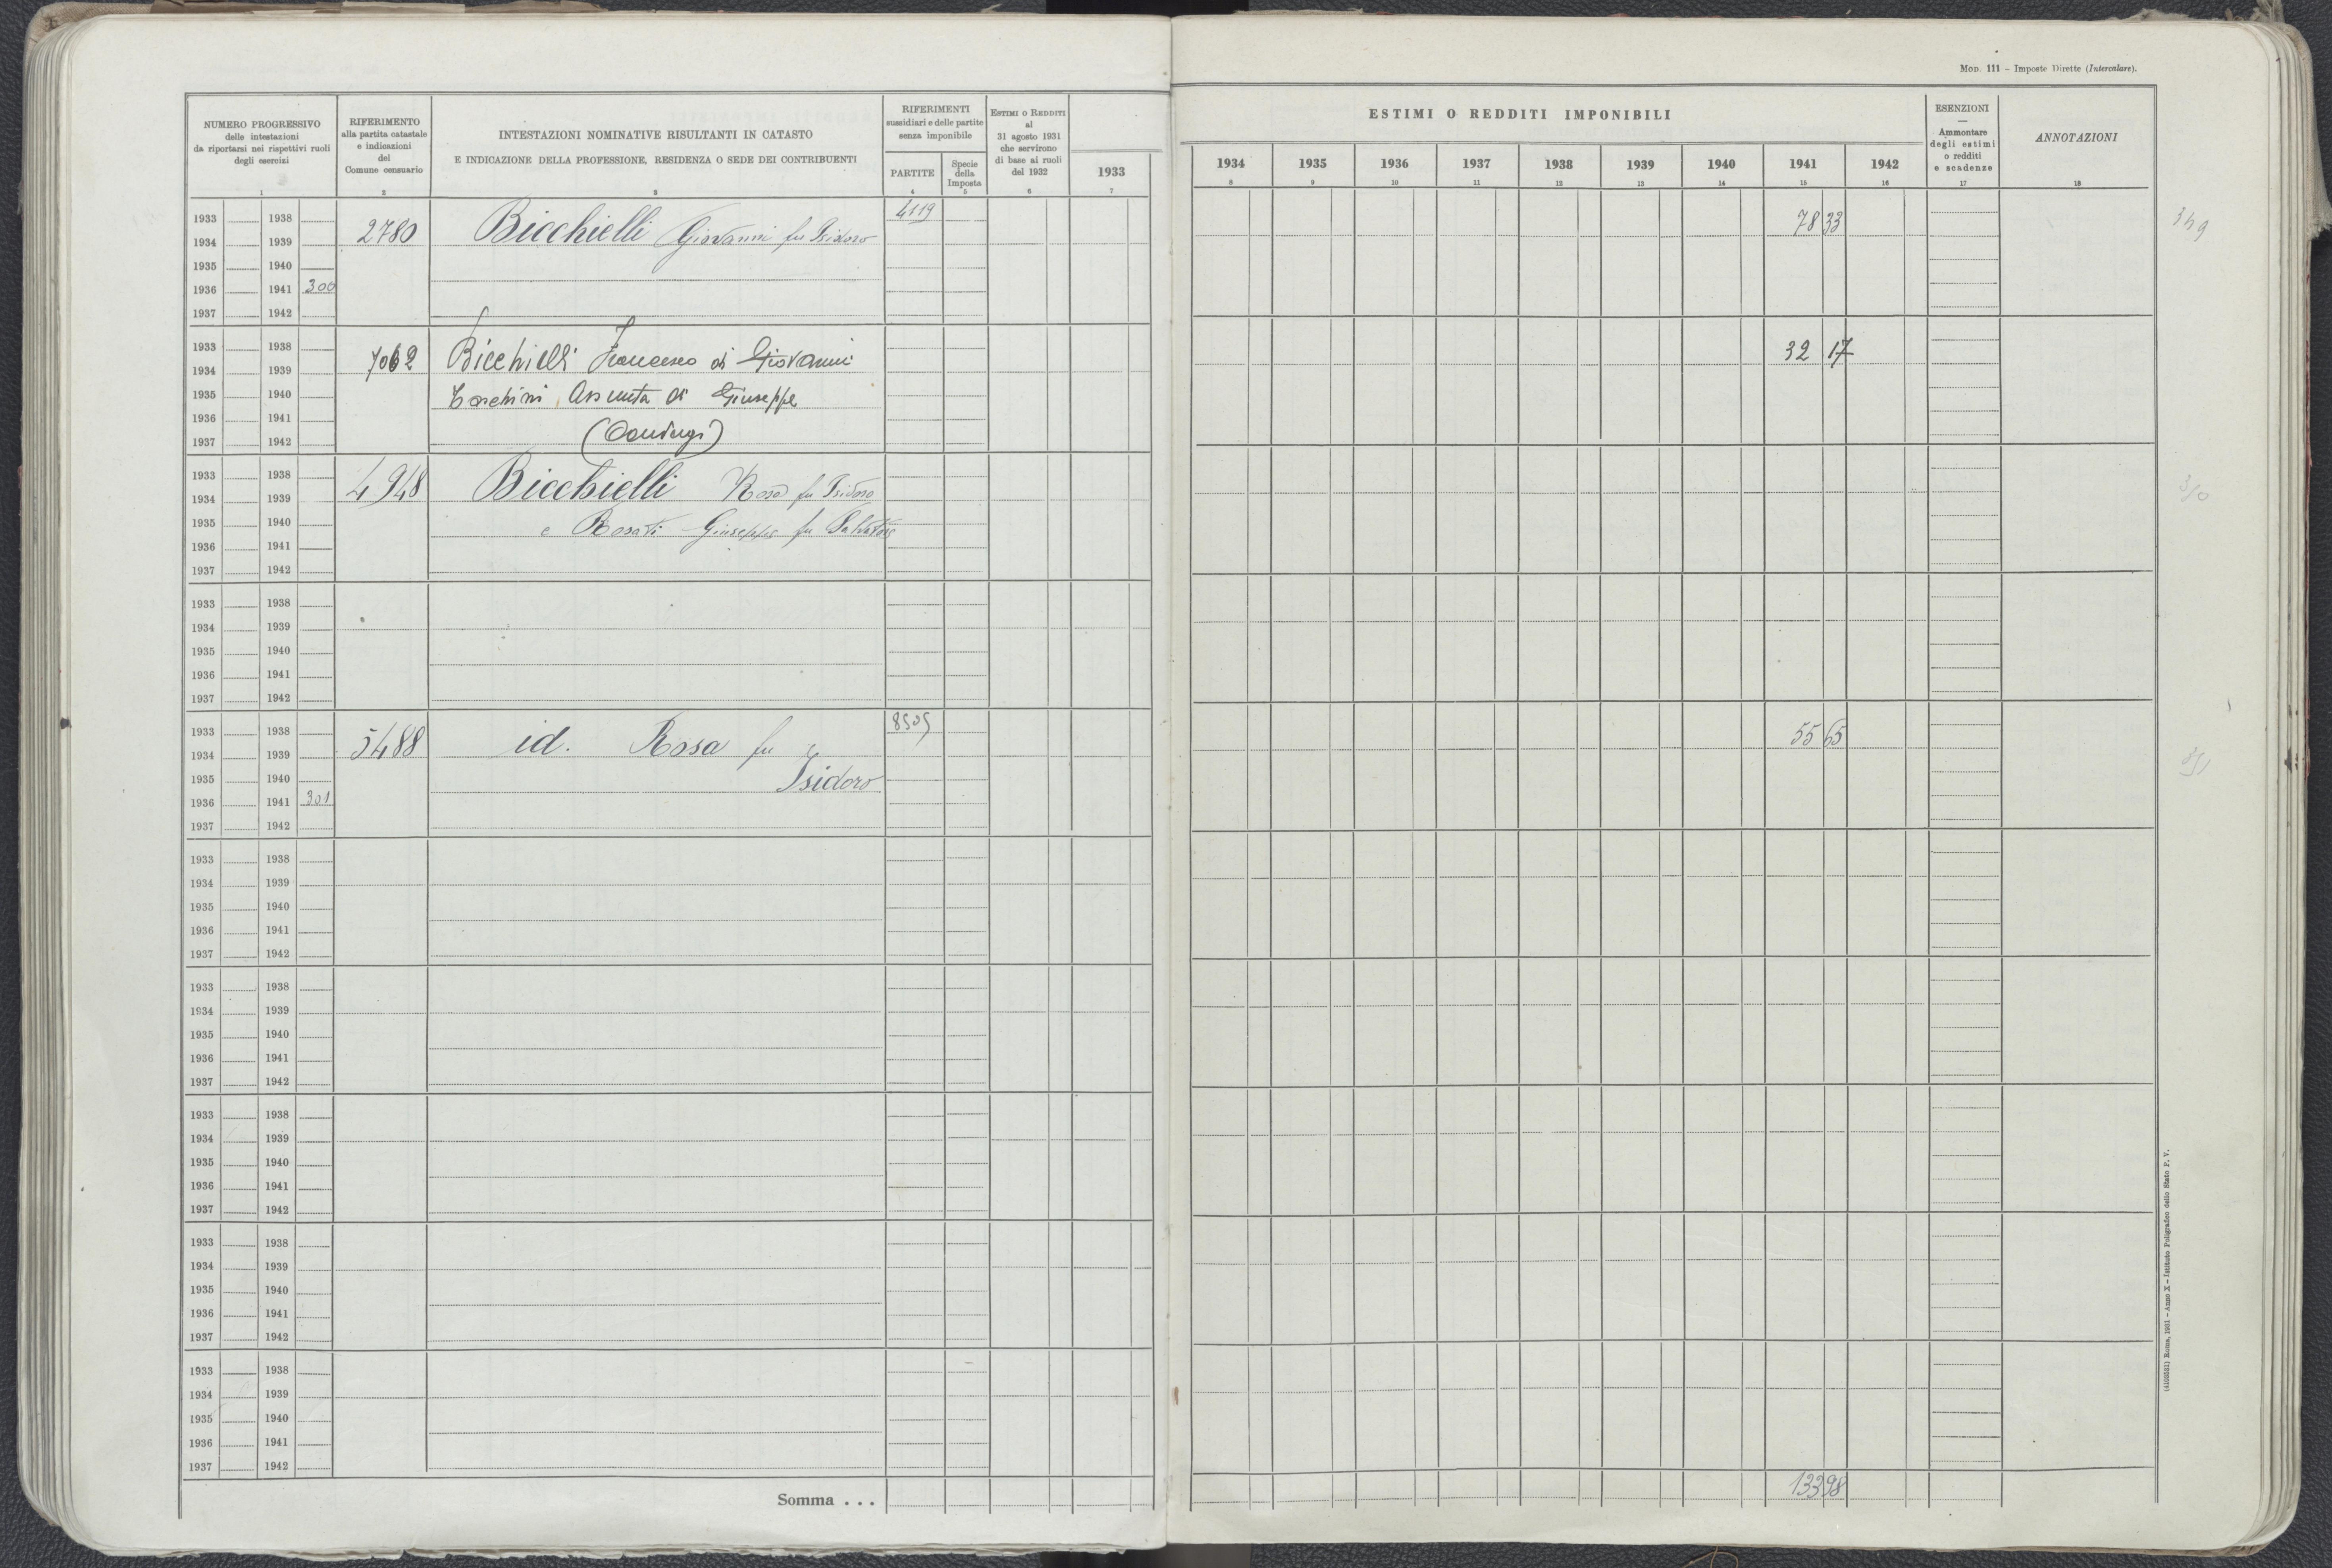 Mod. 111 – Imposte Dirette (Intercalare).
NUMERO PROGRESSIVO
delle intestazioni
da riportarsi nei rispettivi ruoli
degli esercizi
1
RIFERIMENTO
alla partita catastale
e indicazioni
del
Comune censuario
2
INTESTAZIONI NOMINATIVE RISULTANTI IN CATASTO
E INDICAZIONE DELLA PROFESSIONE, RESIDENZA O SEDE DEI CONTRIBUENTI
3
RIFERIMENTI
sussidiari e delle partite
senza imponibile
PARTITE
4
Specie
della
Imposta
5
Estimi o Redditi
al
31 agosto 1931
che servirono
di base ai ruoli
del 1932
6
1933
7
ESTIMI O REDDITI IMPONIBILI
1934 1935 1936 1937 1938 1939 1940 1941 1942
8 9 10 11 12 13 14 15 16
ESENZIONI
—
Ammontare
degli estimi
o redditi
e scadenze
17
ANNOTAZIONI
18
1933 1938 4119
1934 1939 2780 Bicchielli Giovanni fu Isidoro 78 33 349
1935 1940
1936 1941 300
1937 1942
1933 1938
1934 1939 7062 Bicchielli Francesco di Giovanni 32 17
1935 1940 Assunta di Giuseppe
1936 1941
1937 1942 (Coniugi)
1933 1938
1934 1939 4948 Bicchielli Rosa fu Isidoro
1935 1940 e Rosati Giuseppe fu Salvatore
1936 1941
1937 1942
1933 1938
1934 1939
1935 1940
1936 1941
1937 1942
1933 1938 8505
1934 1939 5488 id. Rosa fu 55 65
1935 1940 Isidoro
1936 1941 301
1937 1942
1933 1938
1934 1939
1935 1940
1936 1941
1937 1942
1933 1938
1934 1939
1935 1940
1936 1941
1937 1942
1933 1938
1934 1939
1935 1940
1936 1941
1937 1942
1933 1938
1934 1939
1935 1940
1936 1941
1937 1942
1933 1938
1934 1939
1935 1940
1936 1941
1937 1942
Somma . . . 13398
Roma, 1931 – Anno X – Istituto Poligrafico dello Stato P. V.